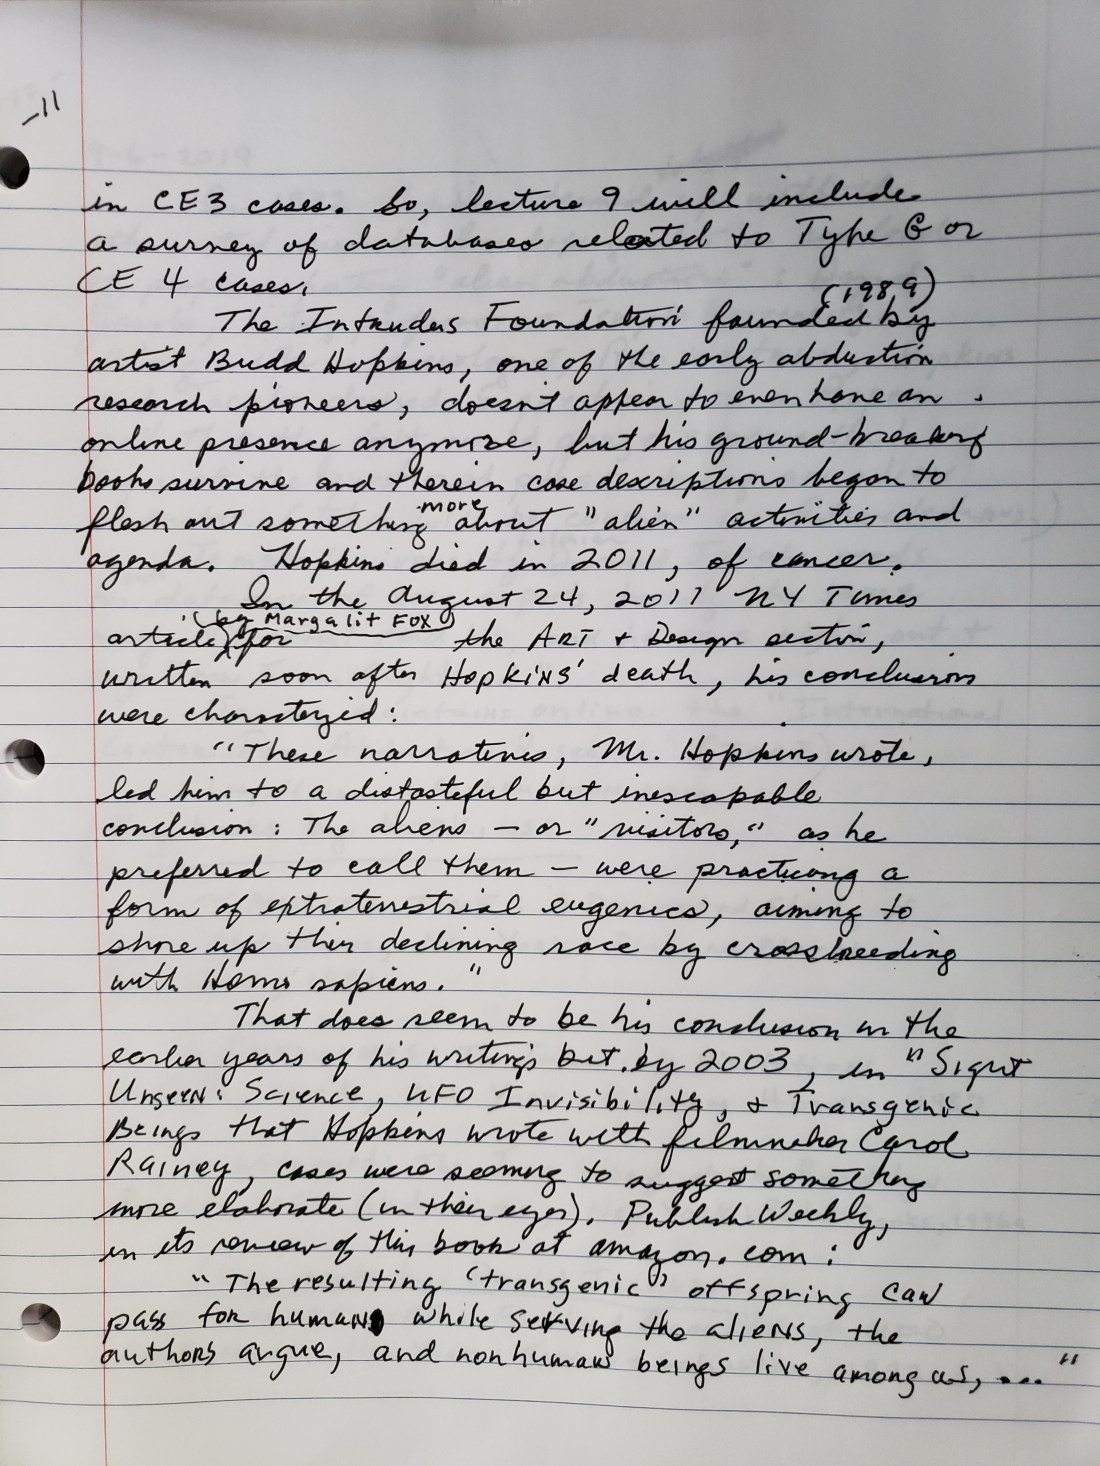 -11
in CE3 cases. So, lecture 9 will include
a survey of databases related to Type G or
CE 4 cases.
(1989)
The Intruders Foundation founded by
artist Budd Hopkins, one of the early abduction
research pioneers, doesn't appear to even have an
online presence anymore, but his ground-breaking
books survive and therein case descriptions began to
more
flesh out something about "alien" activities and
agenda. Hopkins died in 2011, of cancer.
In the August 24, 2011 NY Times
(by Margalit Fox)
article for the ART + Design section,
written soon after Hopkins' death, his conclusions
were characterized:
"These narratives, Mr. Hopkins wrote,
led him to a distasteful but inescapable
conclusion: The aliens — or "visitors," as he
preferred to call them — were practicing a
form of extraterrestrial eugenics, aiming to
shore up their declining race by crossbreeding
with Homo sapiens."
That does seem to be his conclusion in the
earlier years of his writings but by 2003, in "Sight
Unseen: Science, UFO Invisibility, + Transgenic
Beings that Hopkins wrote with filmmaker Carol
Rainey, cases were seeming to suggest something
more elaborate (in their eyes). Publish Weekly,
in its review of this book at amazon.com:
"The resulting 'transgenic' offspring can
pass for humans while serving the aliens, the
authors argue, and nonhuman beings live among us, ..."